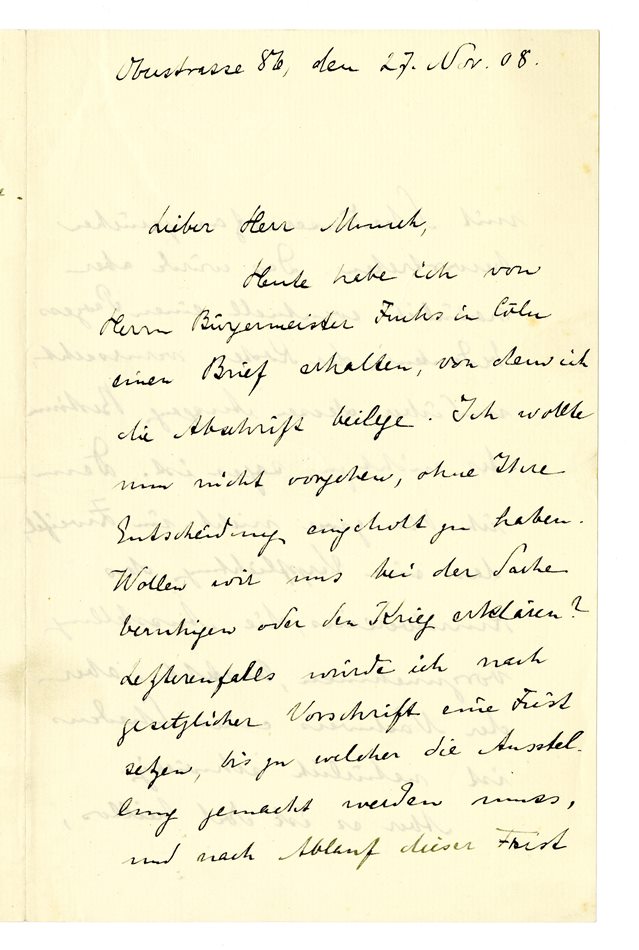 Oberstrasse 86, den 27. Nov. 08.
Lieber Herr Munch,
Heute habe ich von
Herrn Bürgermeister Fuchs in Cöln
einen Brief erhalten, von dem ich
die Abschrift beilege. Ich wollte
nun nicht vorgehen, ohne Ihre
Entscheidung eingeholt zu haben.
Wollen wir uns bei der Sache
beruhigen oder den Krieg erklären?
Letzterenfalls würde ich nach
gesetzlicher Vorschrift eine Frist
setzen, bis zu welcher die Ausstel-
lung gemacht werden muss,
und nach Ablauf dieser Frist